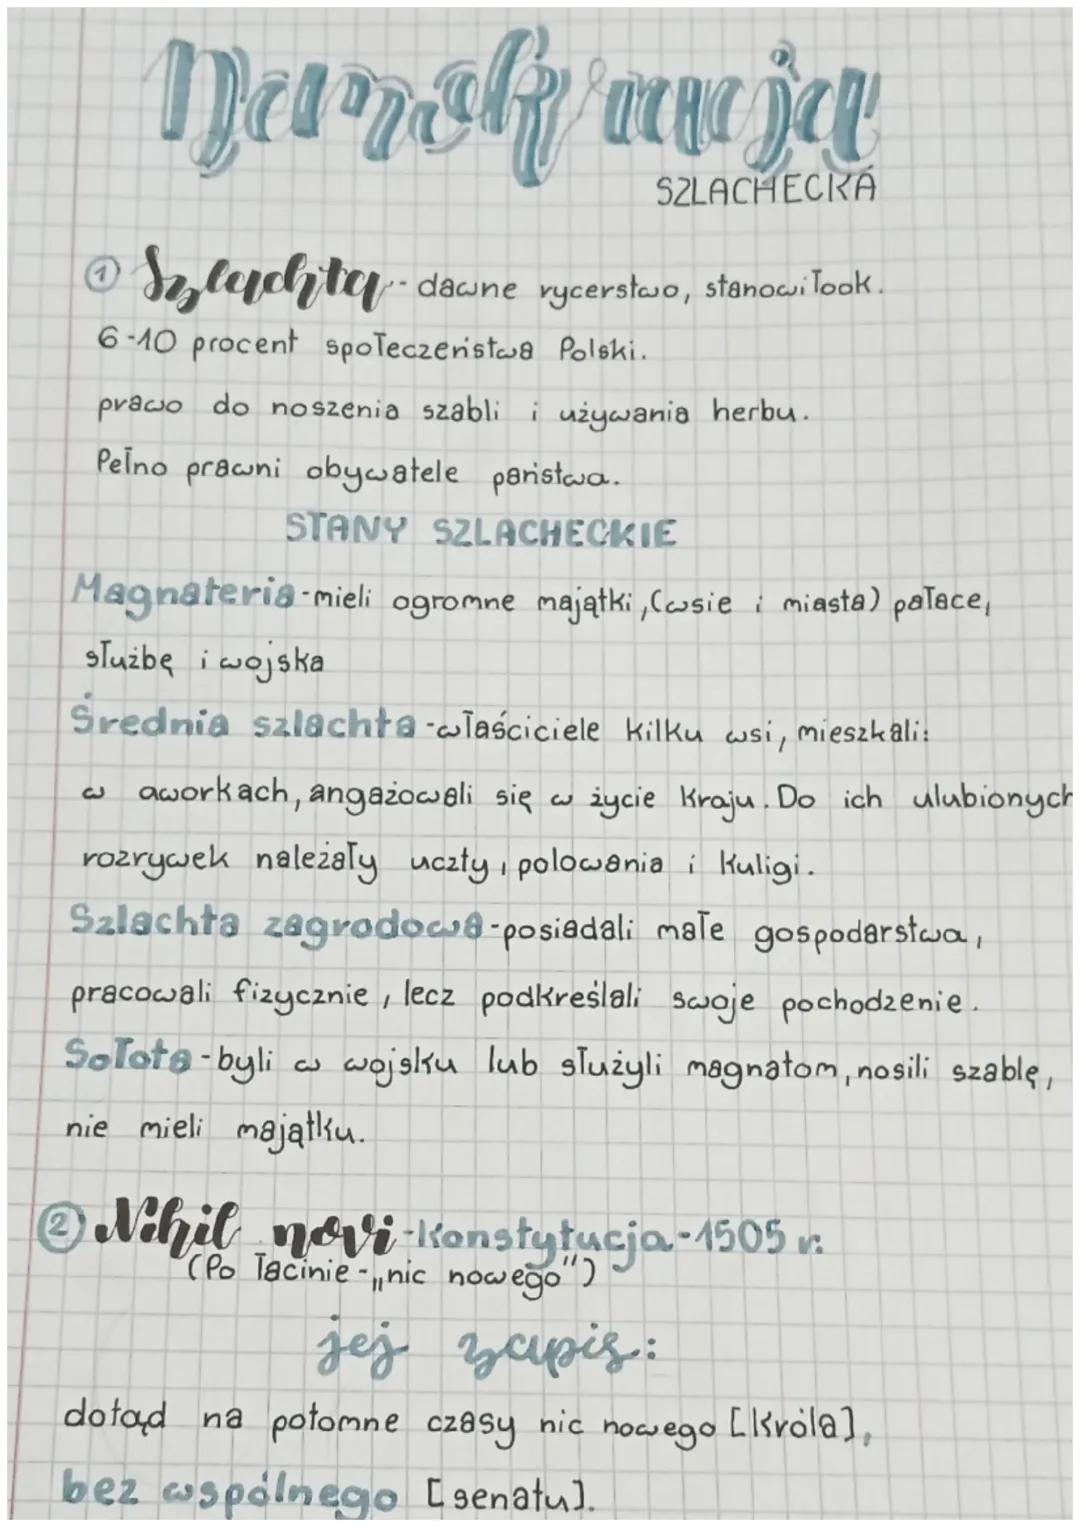 Demokracja
SZLACHECKA
① Szlachta - dawne rycerstwo, stanowił ook.
6-10 procent społeczeństwa Polski.
prawo do noszenia szabli i używania herbu.
Pełno prawni obywatele państwa.
STANY SZLACHECKIE
Magnateria - mieli ogromne majątki, (wsie i miasta) pałace,
służbę i wojska
Średnia szlachta - właściciele kilku wsi, mieszkali:
w aworkach, angażowali się w życie kraju. Do ich ulubionych
rozrywek należały uczty, polowania i kuligi.
Szlachta zagrodowa - posiadali małe gospodarstwa,
pracowali fizycznie, lecz podkreślali swoje pochodzenie.
Sołota - byli w wojsku lub służyli magnatom, nosili szablę,
nie mieli majątku.
② Nihil novi - Konstytucja - 1505 r.
(Po łacinie - „nic nowego")
jej zapis:
dotąd na potomne czasy nic nowego [króla],
bez wspólnego [senatu].